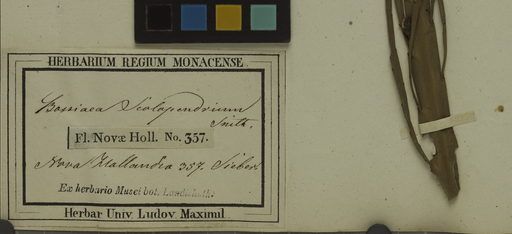 HERBARIUM REGIUM MONACENSE
Bossiaea Scolopendrium
Smith.
Fl. Novæ Holl. No. 357.
Nova Hollandia 357. Sieber
Ex herbario Musei bot. Landishuth.
Herbar. Univ. Ludov. Maximil.